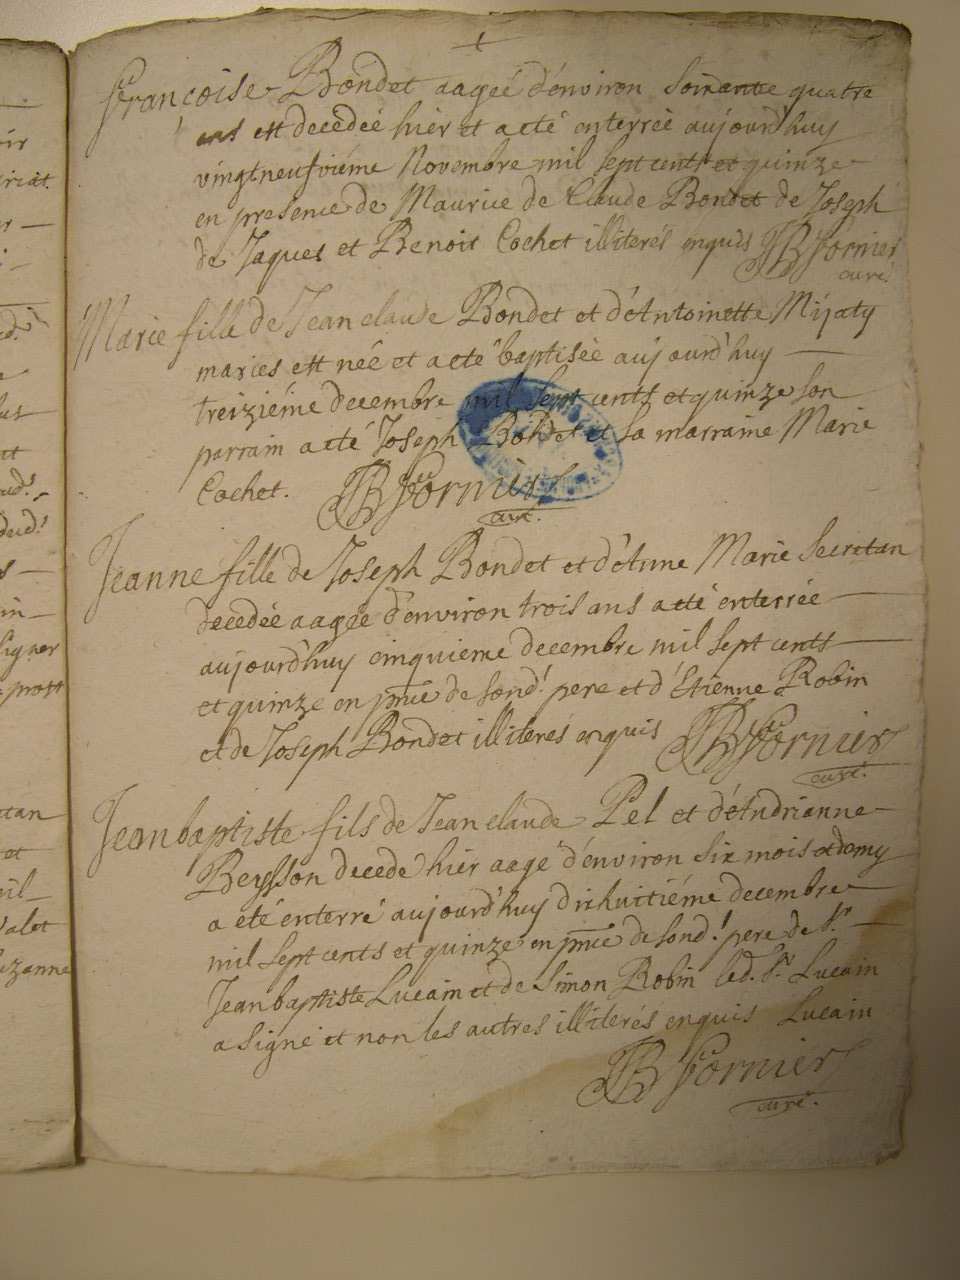 françoise Bondet aageé d'énviron soixante quatre
ans est decedeé hier et a eté enterreé aujourd'huy
vingt neufviéme Novembre mil sept cents et quinze
en presence de Maurice de Claude Bondet de Joseph
de Jaques et Benoit Cochet illiterés enquis JB fornier
curé.
Marie fille de Jean claude Bondet et d'Antoinette Mijaty
mariés est néé et a eté baptiséé aujourd'huy
treiziéme decembre mil sept cents et quinze son
parrain a eté Joseph Bondet et sa marraine Marie
Cochet. JB fornier
curé.
Jeanne fille de Joseph Bondet et d'Anne Marie Secretan
decedéé aagéé d'environ trois ans a eté enterréé
aujourd'huy cinquieme decembre mil sept cents
et quinze en pnce de sond.t pere et d'Etienne Robin
et de Joseph Bondet illiterés enquis JB fornier
curé.
Jean baptiste fils de Jean claude Pel et d'Andrianne
Beysson decedé hier aagé d'énviron six mois et demy
a eté enterré aujourd'huy dixhuitiéme decembre
mil sept cents et quinze en pnce de sond.t pere de s.r
Jean baptiste Lucain et de Simon Robin led. s.r Lucain
a signé et non les autres illiterés enquis Lucain
JB fornier
curé.